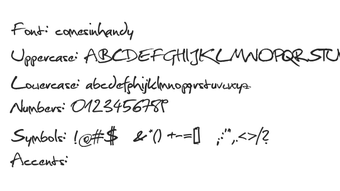 Font: comesinhandy
Uppercase: ABCDEFGHIJKLMNOPQRSTU
Lowercase: abcdefghijklmnopqrstuvwxyz
Numbers: 0123456789
Symbols: !@#$ &*() +-=[] ;:'",.<>/?
Accents: